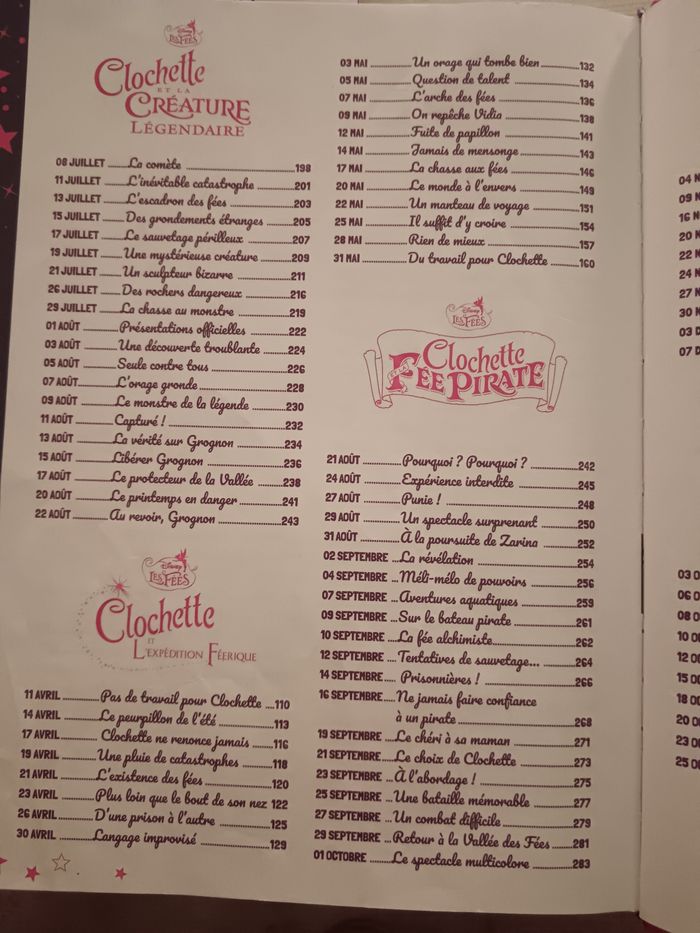 Disney
Les Fées
Clochette
et la
Créature
Légendaire
08 JUILLET ........ La comète ........ 198
11 JUILLET ........ L'inévitable catastrophe ........ 201
13 JUILLET ........ L'escadron des fées ........ 203
15 JUILLET ........ Des grondements étranges ........ 205
17 JUILLET ........ Le sauvetage périlleux ........ 207
19 JUILLET ........ Une mystérieuse créature ........ 209
21 JUILLET ........ Un sculpteur bizarre ........ 211
26 JUILLET ........ Des rochers dangereux ........ 216
29 JUILLET ........ La chasse au monstre ........ 219
01 AOÛT ........ Présentations officielles ........ 222
03 AOÛT ........ Une découverte troublante ........ 224
05 AOÛT ........ Seule contre tous ........ 226
07 AOÛT ........ L'orage gronde ........ 228
09 AOÛT ........ Le monstre de la légende ........ 230
11 AOÛT ........ Capturé ! ........ 232
13 AOÛT ........ La vérité sur Grognon ........ 234
15 AOÛT ........ Libérer Grognon ........ 236
17 AOÛT ........ Le protecteur de la Vallée ........ 238
20 AOÛT ........ Le printemps en danger ........ 241
22 AOÛT ........ Au revoir, Grognon ........ 243
Disney
Les Fées
Clochette
et
l'Expédition Féerique
11 AVRIL ........ Pas de travail pour Clochette .... 110
14 AVRIL ........ Le peurpillon de l'été ........ 113
17 AVRIL ........ Clochette ne renonce jamais ........ 116
19 AVRIL ........ Une pluie de catastrophes ........ 118
21 AVRIL ........ L'existence des fées ........ 120
23 AVRIL ........ Plus loin que le bout de son nez 122
26 AVRIL ........ D'une prison à l'autre ........ 125
30 AVRIL ........ Langage improvisé ........ 129
03 MAI ........ Un orage qui tombe bien ........ 132
05 MAI ........ Question de talent ........ 134
07 MAI ........ L'arche des fées ........ 136
09 MAI ........ On repêche Vidia ........ 138
12 MAI ........ Fuite de papillon ........ 141
14 MAI ........ Jamais de mensonge ........ 143
17 MAI ........ La chasse aux fées ........ 146
20 MAI ........ Le monde à l'envers ........ 149
22 MAI ........ Un manteau de voyage ........ 151
25 MAI ........ Il suffit d'y croire ........ 154
28 MAI ........ Rien de mieux ........ 157
31 MAI ........ Du travail pour Clochette ........ 160
Disney
Les Fées
Clochette
et la
Fée Pirate
21 AOÛT ........ Pourquoi ? Pourquoi ? ........ 242
24 AOÛT ........ Expérience interdite ........ 245
27 AOÛT ........ Punie ! ........ 248
29 AOÛT ........ Un spectacle surprenant ........ 250
31 AOÛT ........ À la poursuite de Zarina ........ 252
02 SEPTEMBRE ... La révélation ........ 254
04 SEPTEMBRE ... Méli-mélo de pouvoirs ........ 256
07 SEPTEMBRE ... Aventures aquatiques ........ 259
09 SEPTEMBRE ... Sur le bateau pirate ........ 261
10 SEPTEMBRE ... La fée alchimiste ........ 262
12 SEPTEMBRE .... Tentatives de sauvetage... ........ 264
14 SEPTEMBRE .... Prisonnières ! ........ 266
16 SEPTEMBRE .... Ne jamais faire confiance
à un pirate ........ 268
19 SEPTEMBRE .... Le chéri à sa maman ........ 271
21 SEPTEMBRE .... Le choix de Clochette ........ 273
23 SEPTEMBRE .... À l'abordage ! ........ 275
25 SEPTEMBRE .... Une bataille mémorable ........ 277
27 SEPTEMBRE ... Un combat difficile ........ 279
29 SEPTEMBRE ... Retour à la Vallée des Fées ........ 281
01 OCTOBRE ........ Le spectacle multicolore ........ 283
04 N
09 N
16 N
20 N
22 N
24 N
27 N
30 N
03 D
07 D
03 O
06 O
08 O
10 O
12 O
15 O
18 O
20 O
23 O
25 O